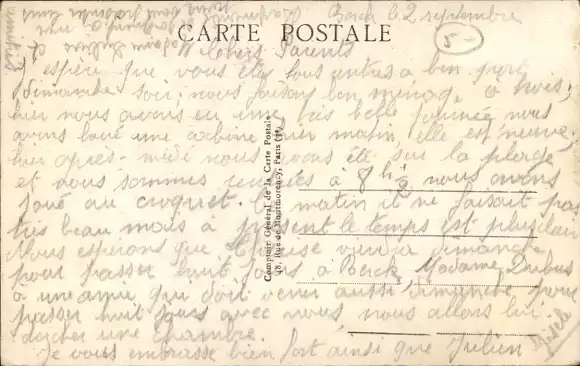 Berck le 2 septembre
5-
CARTE POSTALE
Chers Parents
J'espère que vous êtes tous rentrés à bon port
dimanche soir; nous faisons bon ménage à trois;
hier nous avons eu une très belle journée nous
avons loué une cabine hier matin, elle est neuve.
hier après-midi nous avons été sur la plage
et nous sommes rentrées à 8h 1/2 nous avons
joué au croquet. Ce matin il ne faisait pas
très beau mais à présent le temps est plus clair
Nous espérons que viendra dimanche
pour passer huit jours à Berck. Madame Dubus
à une amie qui doit venir aussi, dimanche pour
passer huit jours avec nous, nous allons lui
chercher une chambre.
Je vous embrasse bien fort ainsi que Julien
Gisèle
Comptoir Général de la Carte Postale
Rue de Montmorency, Paris